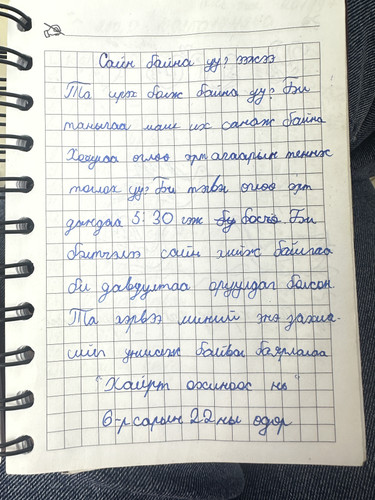 Сайн байна уу? ээжээ
Та ирж болж байна уу? Би
таныгаа маш их санаж байна
Хоёулаа өглөө эрт агаарын теннис
тоглох уу? Би тэвэл өглөө эрт
дандаа 5:30 гэж босно. Би
бэлтгэлээ сайн хийж байгаа
би давуултаа оруулдаг болсон.
Та хэрвээ миний энэ захиа-
ийг уншиж байвал баярлалаа
"Хайрт охиноос нь"
6-р сарын 22 ны өдөр